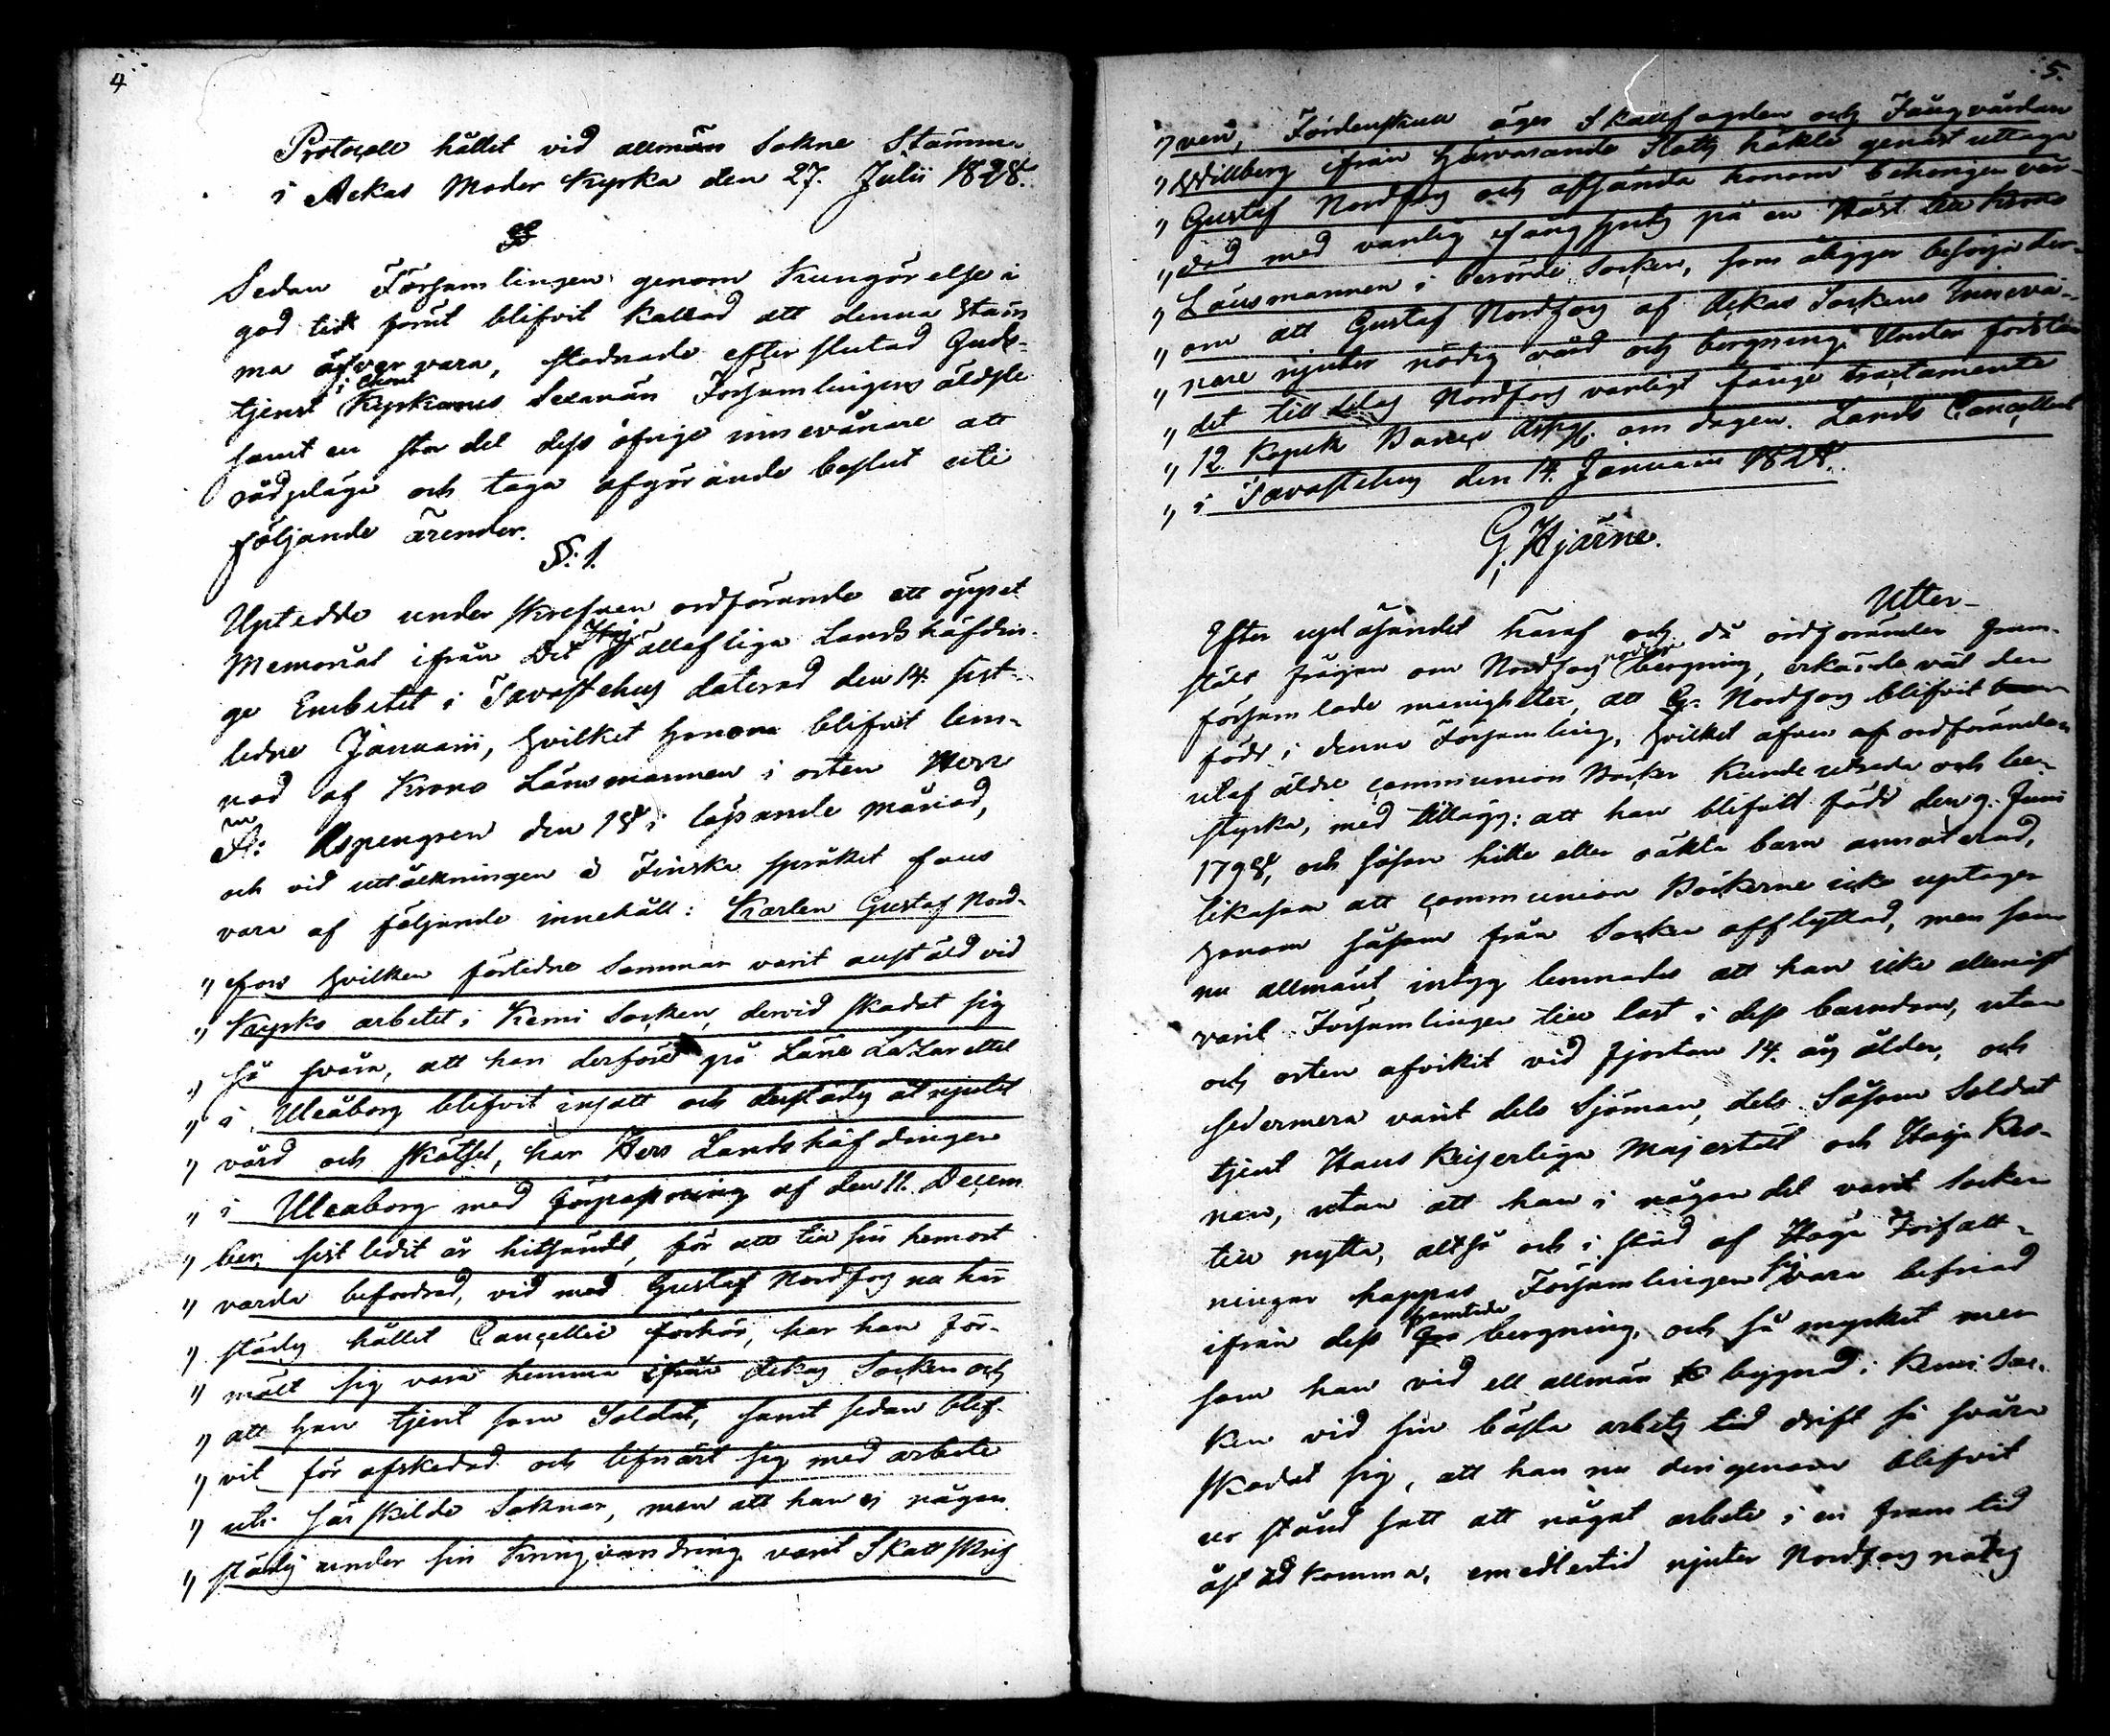 4
Protocoll hållet vid allmän Sokne Stämma
i Ackas Moder Kyrka den 27. Julii 1828.
§
Sedan Församlingen genom Kungörelse i
god tid förut blifvit kallad att denna Stäm
ma öfver vara, stadnade efter slutad Guds-
tjenst i Kyrkan Sexmän Församlingens äldste
samt en stor del dess öfrige innevånare att
rådpläga och taga afgörande beslut uti
följande ärender.
§. 1.
Uptedde under skrefven ordförande ett öppet
Memorial ifrån Det Höga Landshöfdin-
ge Embetet i Tavastehus daterad den 14. sist-
ledne Januarii, hvilket honom blifvit lem-
nad af Krono Länsmannen i orten Herr
A: Aspengren den 18 i löpande månad,
och vid uttålkningen å Finska språket fans
vara af följande innehåll: Karlen Gustaf Nord-
" fors hvilken förledne Sommar varit anstäld vid
" Kyrko arbetet i Kemi Socken, dervid skadat sig
" så svåra, att han derföre på Läns Lazarettet
" i Uleåborg blifvit insatt och derstädes åtnjutit
" vård och skötsel, har Herr Landshöfdingen
" i Uleaborg med förpassning af den 11. Decem
" ber, sist ledit år hitsändt, för att till sin hemort
" varda befordrad, vid med Gustaf Nordfors nu här
" städes hållit Cancellie förhör, har han för-
" mält sig vara hemma ifrån Ackas Socken och
" att han tjent som Soldat, samt sedan blef
" vit för afskedad och lifnärt sig med arbete
" uti särskilde Soknar, men att han ej någon
" städes under sin Kringvandring varit Skattskrif
5.
" ven, Fördenskull äger Skallfogden och Fångvårdaren
" Willberg ifrån härvarande Slotts häkte genast uttaga
" Gustaf Nordfors och afsända honom behörigen vår-
" dad med vanlig fångskjuts på en Häst till Krono
" Länsmannen i berörde Socken, som åligger besörja der-
" om att Gustaf Nordfors af Ackas Sockens Innevå-
" nare njuter nödig vård och bergning. Under forslan
" det tilldelas Nordfors vanligt fånge tractamente
" 12 Kopek Banco Assign. om dagen. Lands Cancelliet
" i Tavastehus den 14. Januarii 1828.
G. Hjärne.
Utter-
Efter upläsandet häraf och då ordföranden fram-
stält frågan om Nordfors nödiga bergning, erkände väl den
församlade menigheten, att G. Nordfors blifvit
född i denna Församling, hvilket äfven af ordföranden
utaf äldre communion Böcker kunde utreda och be-
styrka, med tillägg: att han blifvitt född den 9. Juni
1798, och såsom hitte eller oäkta barn annoterad,
likasom att communion Böckerne icke uptager
honom såsom från Socken afflyttad, men som
nu allmänt intyg lemnades att han icke allenast
varit Församlingen till last i dess barndom, utan
och orten afvikit vid fjorton 14. års ålder, och
sedermera varit dels Sjöman, dels Såsom Soldat
tjent Hans Kejserliga Majestät och Höga Kro-
nan, utan att han i någon del varit Socken
till nytta, altså och i stöd af Höga Författ-
ningar hoppas Församlingen sig vara befriad
ifrån dess framtida bergning, och så mycket mer
som han vid ell allmän bygnad i Kemi Soc-
ken vid sin bästa arbets tid drift så svåra
skadat sig, att han nu derigenom blifvit
ur stånd satt att något arbete i en framtid
åstadkomma, emedlertid njuter Nordfors nödig